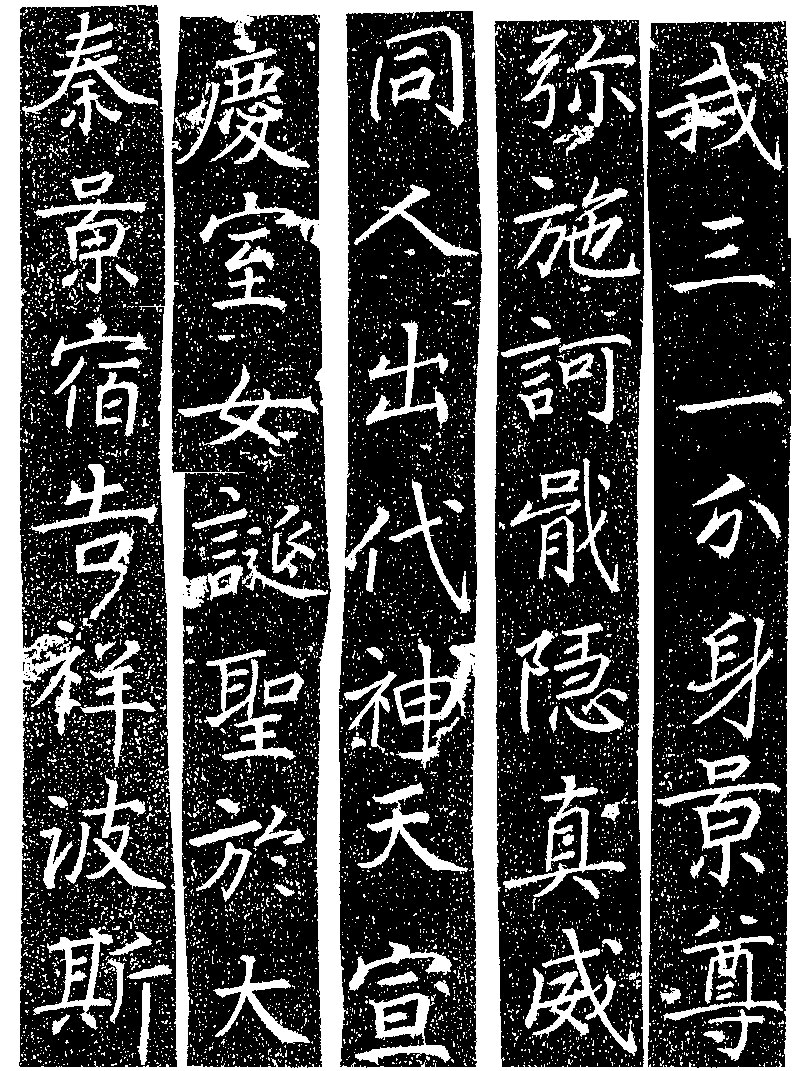 我三一分身景尊
弥施訶戢隱真威
同人出代神天宣
慶室女誕聖於大
秦景宿告祥波斯